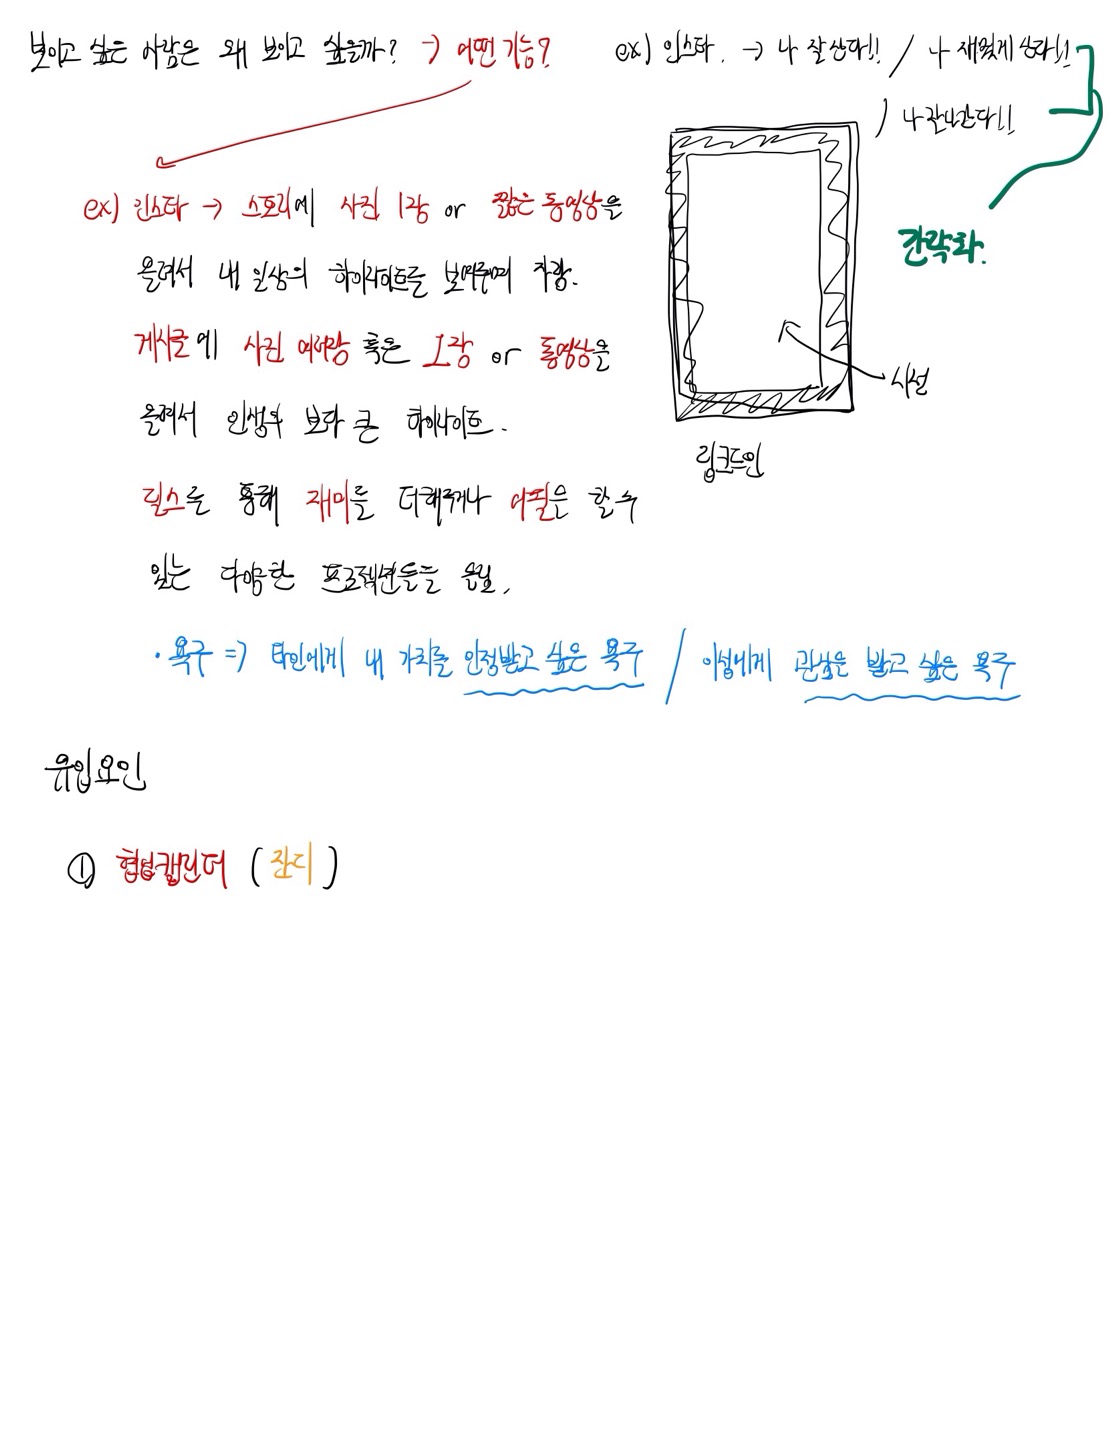 보이고 싶은 사람은 왜 보이고 싶을까? → 어떤 기능?
ex) 인스타. → 나 잘산다!! / 나 재밌게 산다!!
/ 나 잘나간다!!
간략화.
ex) 인스타 → 스토리에 사진 1장 or 짧은 동영상을
올려서 내 일상의 하이라이트를 보여주며 자랑.
게시글에 사진 여러장 혹은 1장 or 동영상을
올려서 인생의 보다 큰 하이라이트.
릴스를 통해 재미를 더해주거나 어필을 할 수
있는 다양한 프로젝션들을 올림.
시선
링크드인
· 욕구 => 타인에게 내 가치를 인정받고 싶은 욕구 / 이성에게 관심을 받고 싶은 욕구
유입요인
① 협업캘린더 (잔디)